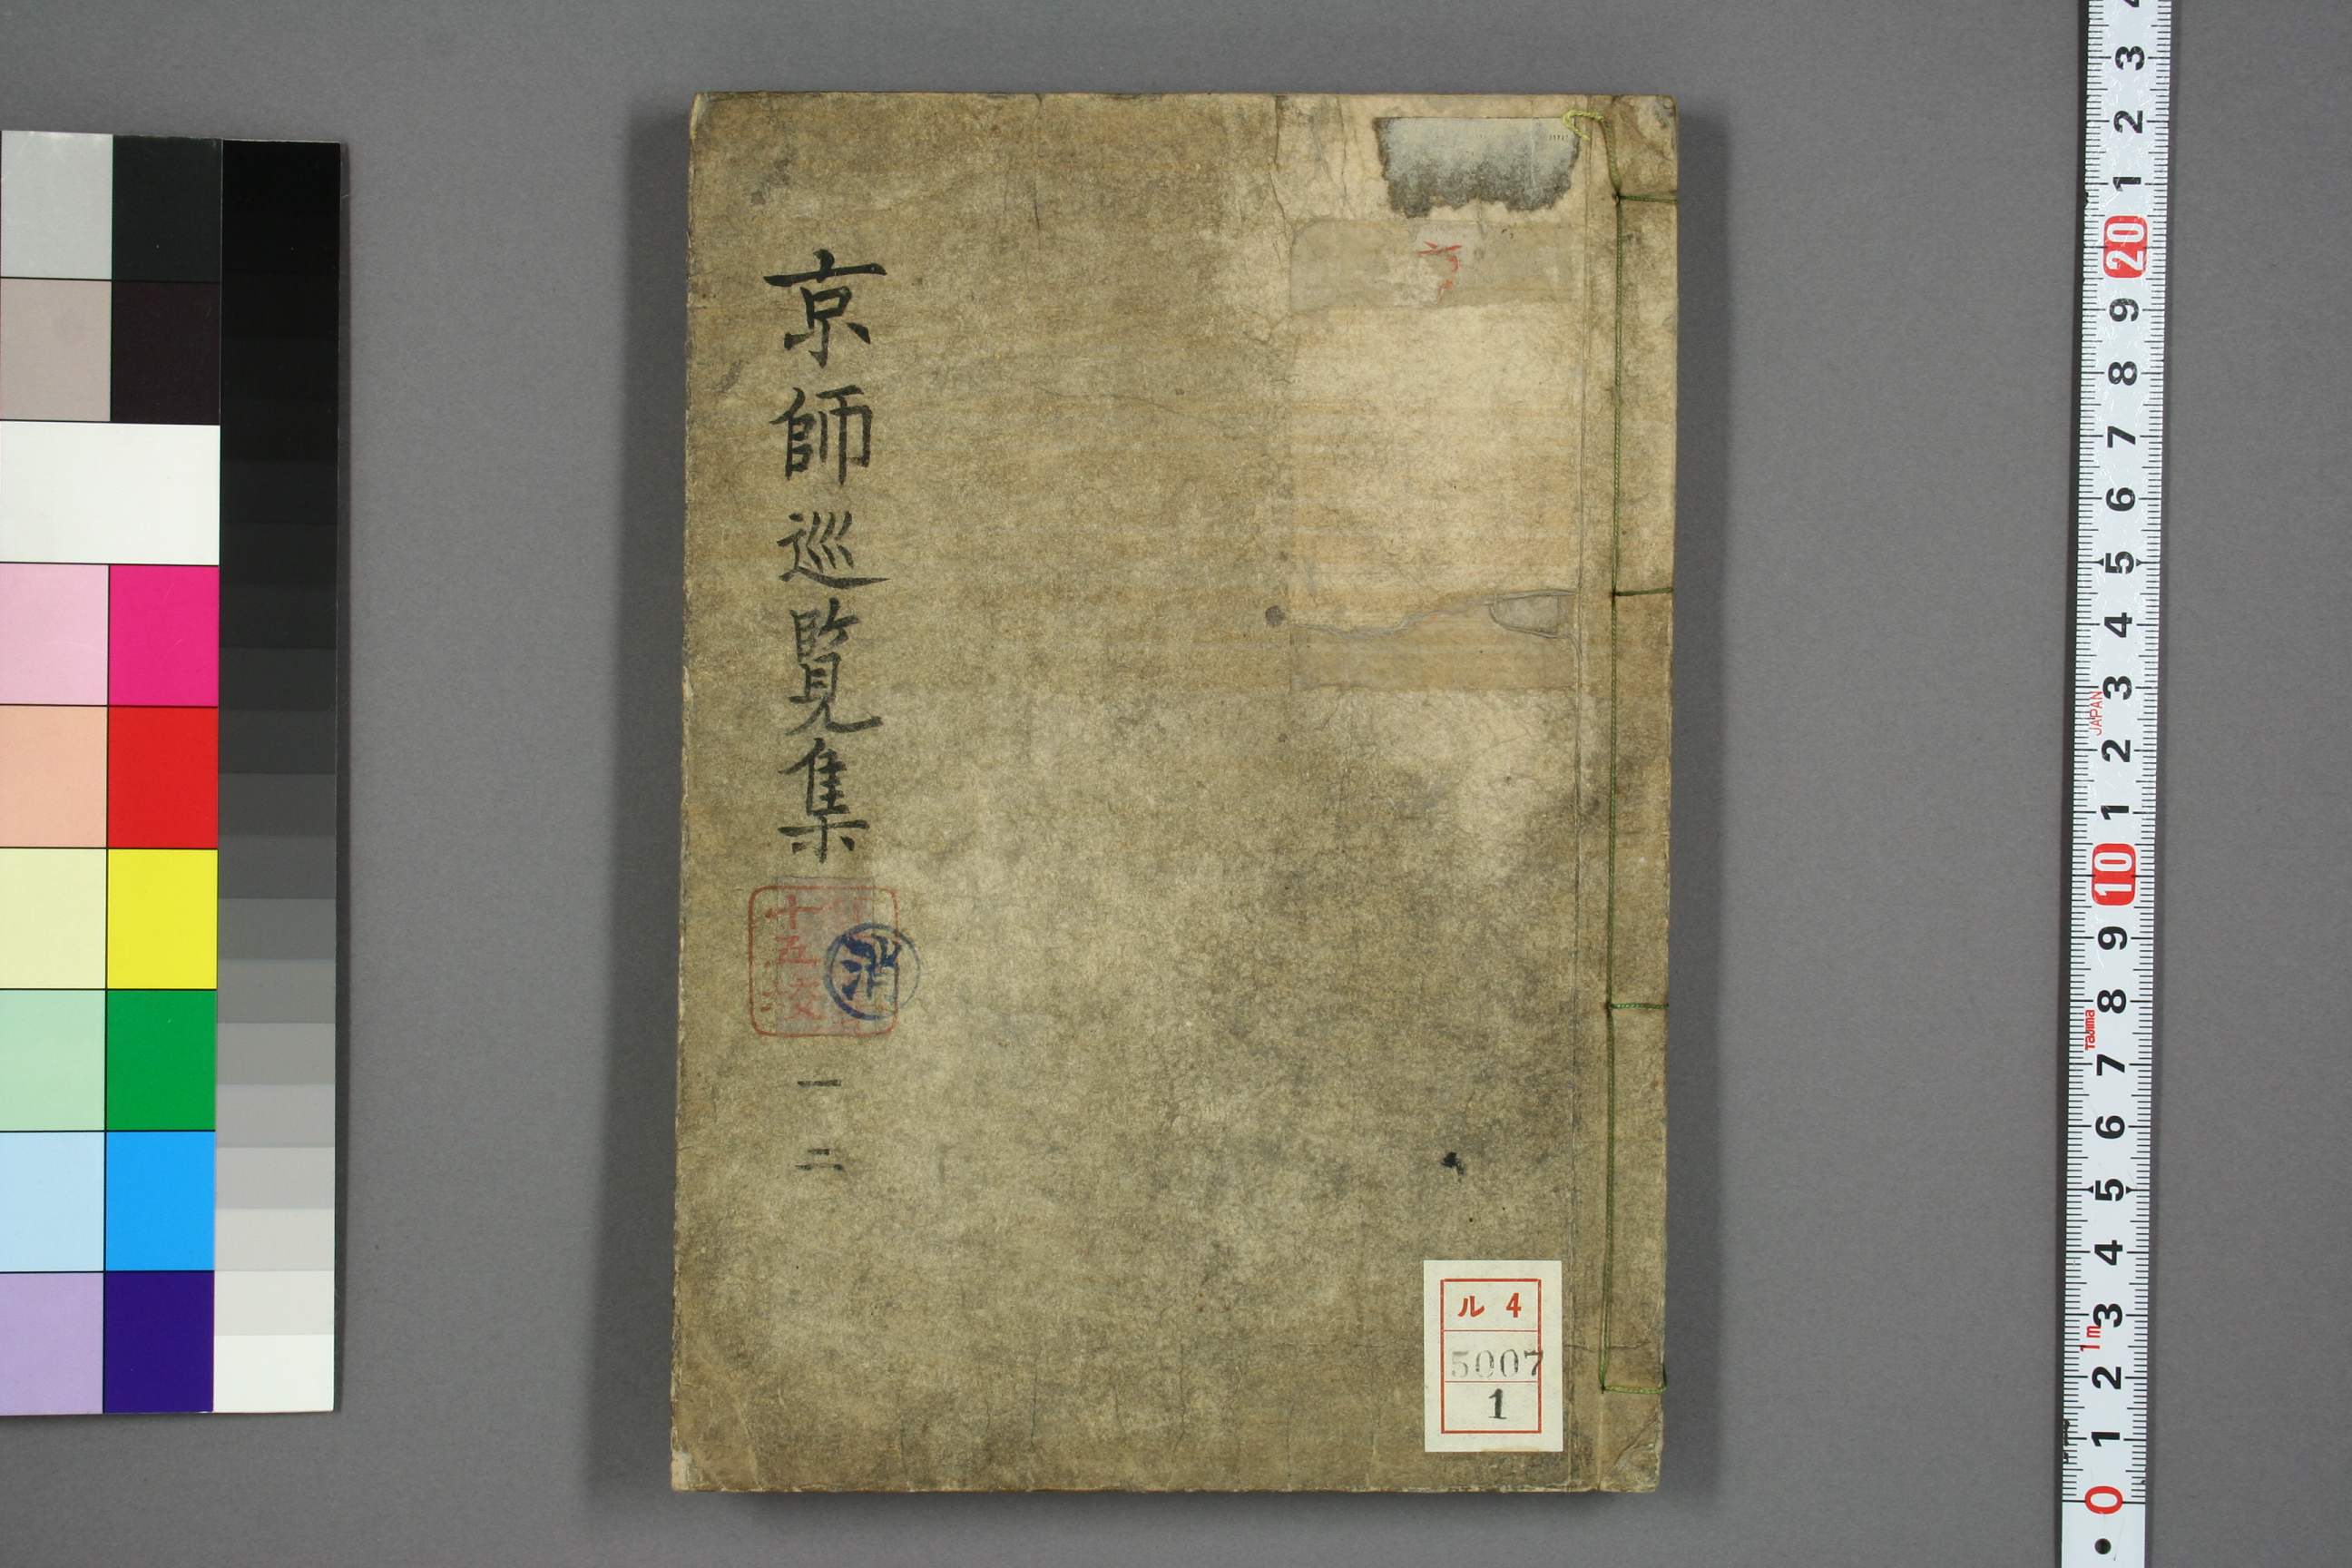 京師巡覧集
十五
消
一
二
ル 4
5007
1
4
3
2
1
20
9
8
7
6
5
4
3
JAPAN
2
1
10
9
8
Tajima
7
6
5
4
3
1m
2
1
0